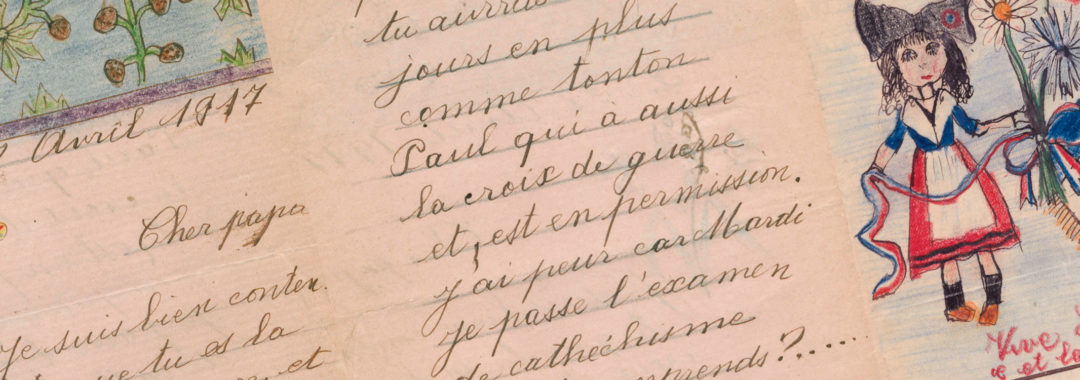 Avril 1917
Cher papa
Je suis bien conten.
que tu as la
et
tu aurras
jours en plus
comme tonton
Paul qui à aussi
la croix de guerre
et, est en permission.
j'ai peur car Mardi
je passe l'examen
de cathéchisme
?.....
Vive
et